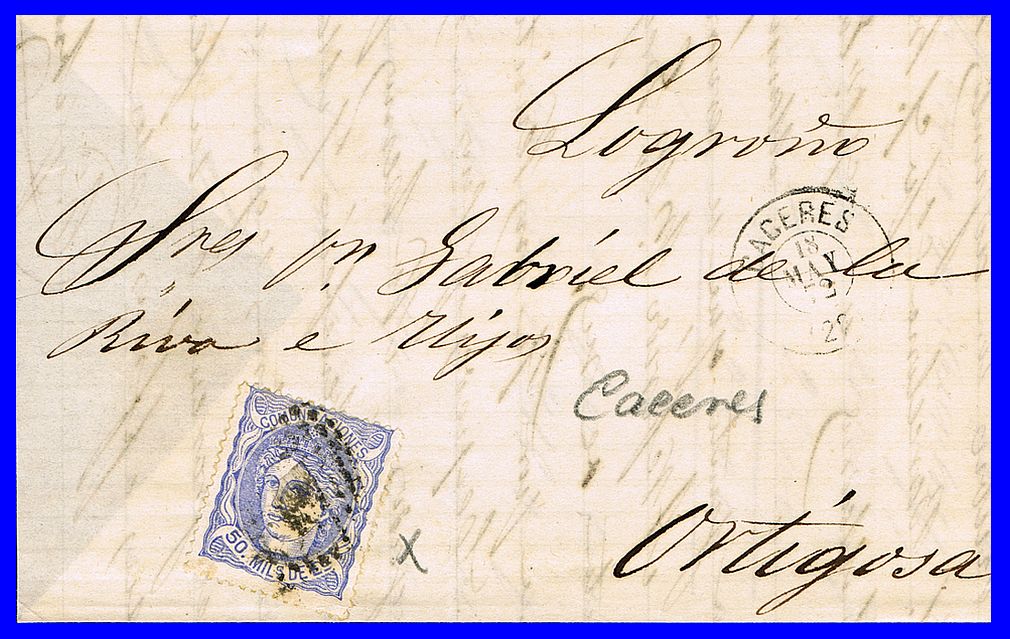 Logroño
Sres Dn. Gabriel de la
Riva e Hijos
CACERES
18
MAY
72
Caceres
COMUNICACIONES
50. MILS DE E.
X
Ortigosa